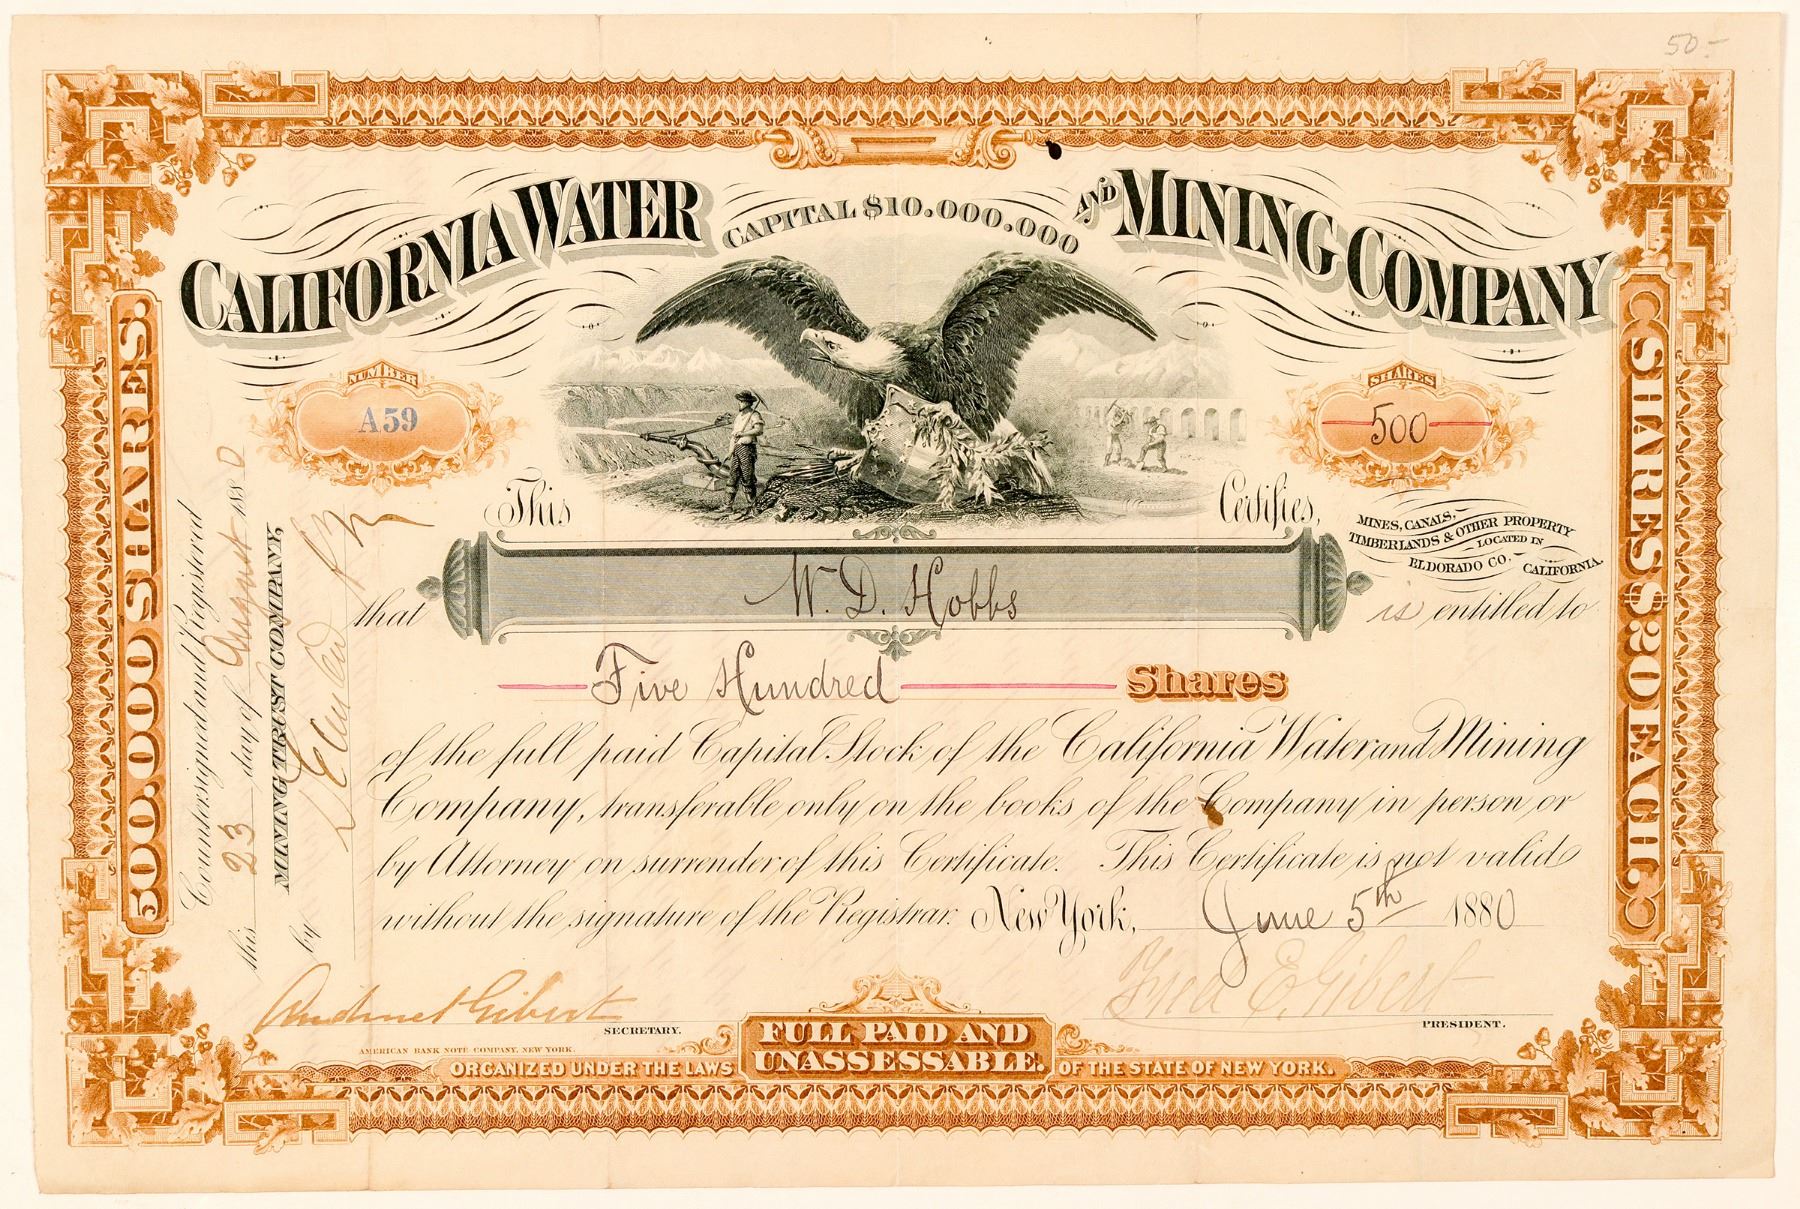 50-
CALIFORNIA WATER AND MINING COMPANY
CAPITAL $10.000.000
NUMBER
A59
SHARES
500
This Certifies,
MINES, CANALS,
TIMBERLANDS & OTHER PROPERTY
LOCATED IN
ELDORADO CO. CALIFORNIA.
that W. D. Hobbs is entitled to
Five Hundred Shares
of the full paid Capital Stock of the California Water and Mining
Company, transferable only on the books of the Company in person or
by Attorney on surrender of this Certificate. This Certificate is not valid
without the signature of the Registrar. New York, June 5th 1880
Gibert
SECRETARY.
Fred E. Gibert
PRESIDENT.
AMERICAN BANK NOTE COMPANY, NEW YORK.
FULL PAID AND
UNASSESSABLE.
ORGANIZED UNDER THE LAWS OF THE STATE OF NEW YORK.
500.000 SHARES.
SHARES $20 EACH.
Countersigned and Registered
this 23 day of August 1880
MINING TRUST COMPANY,
by